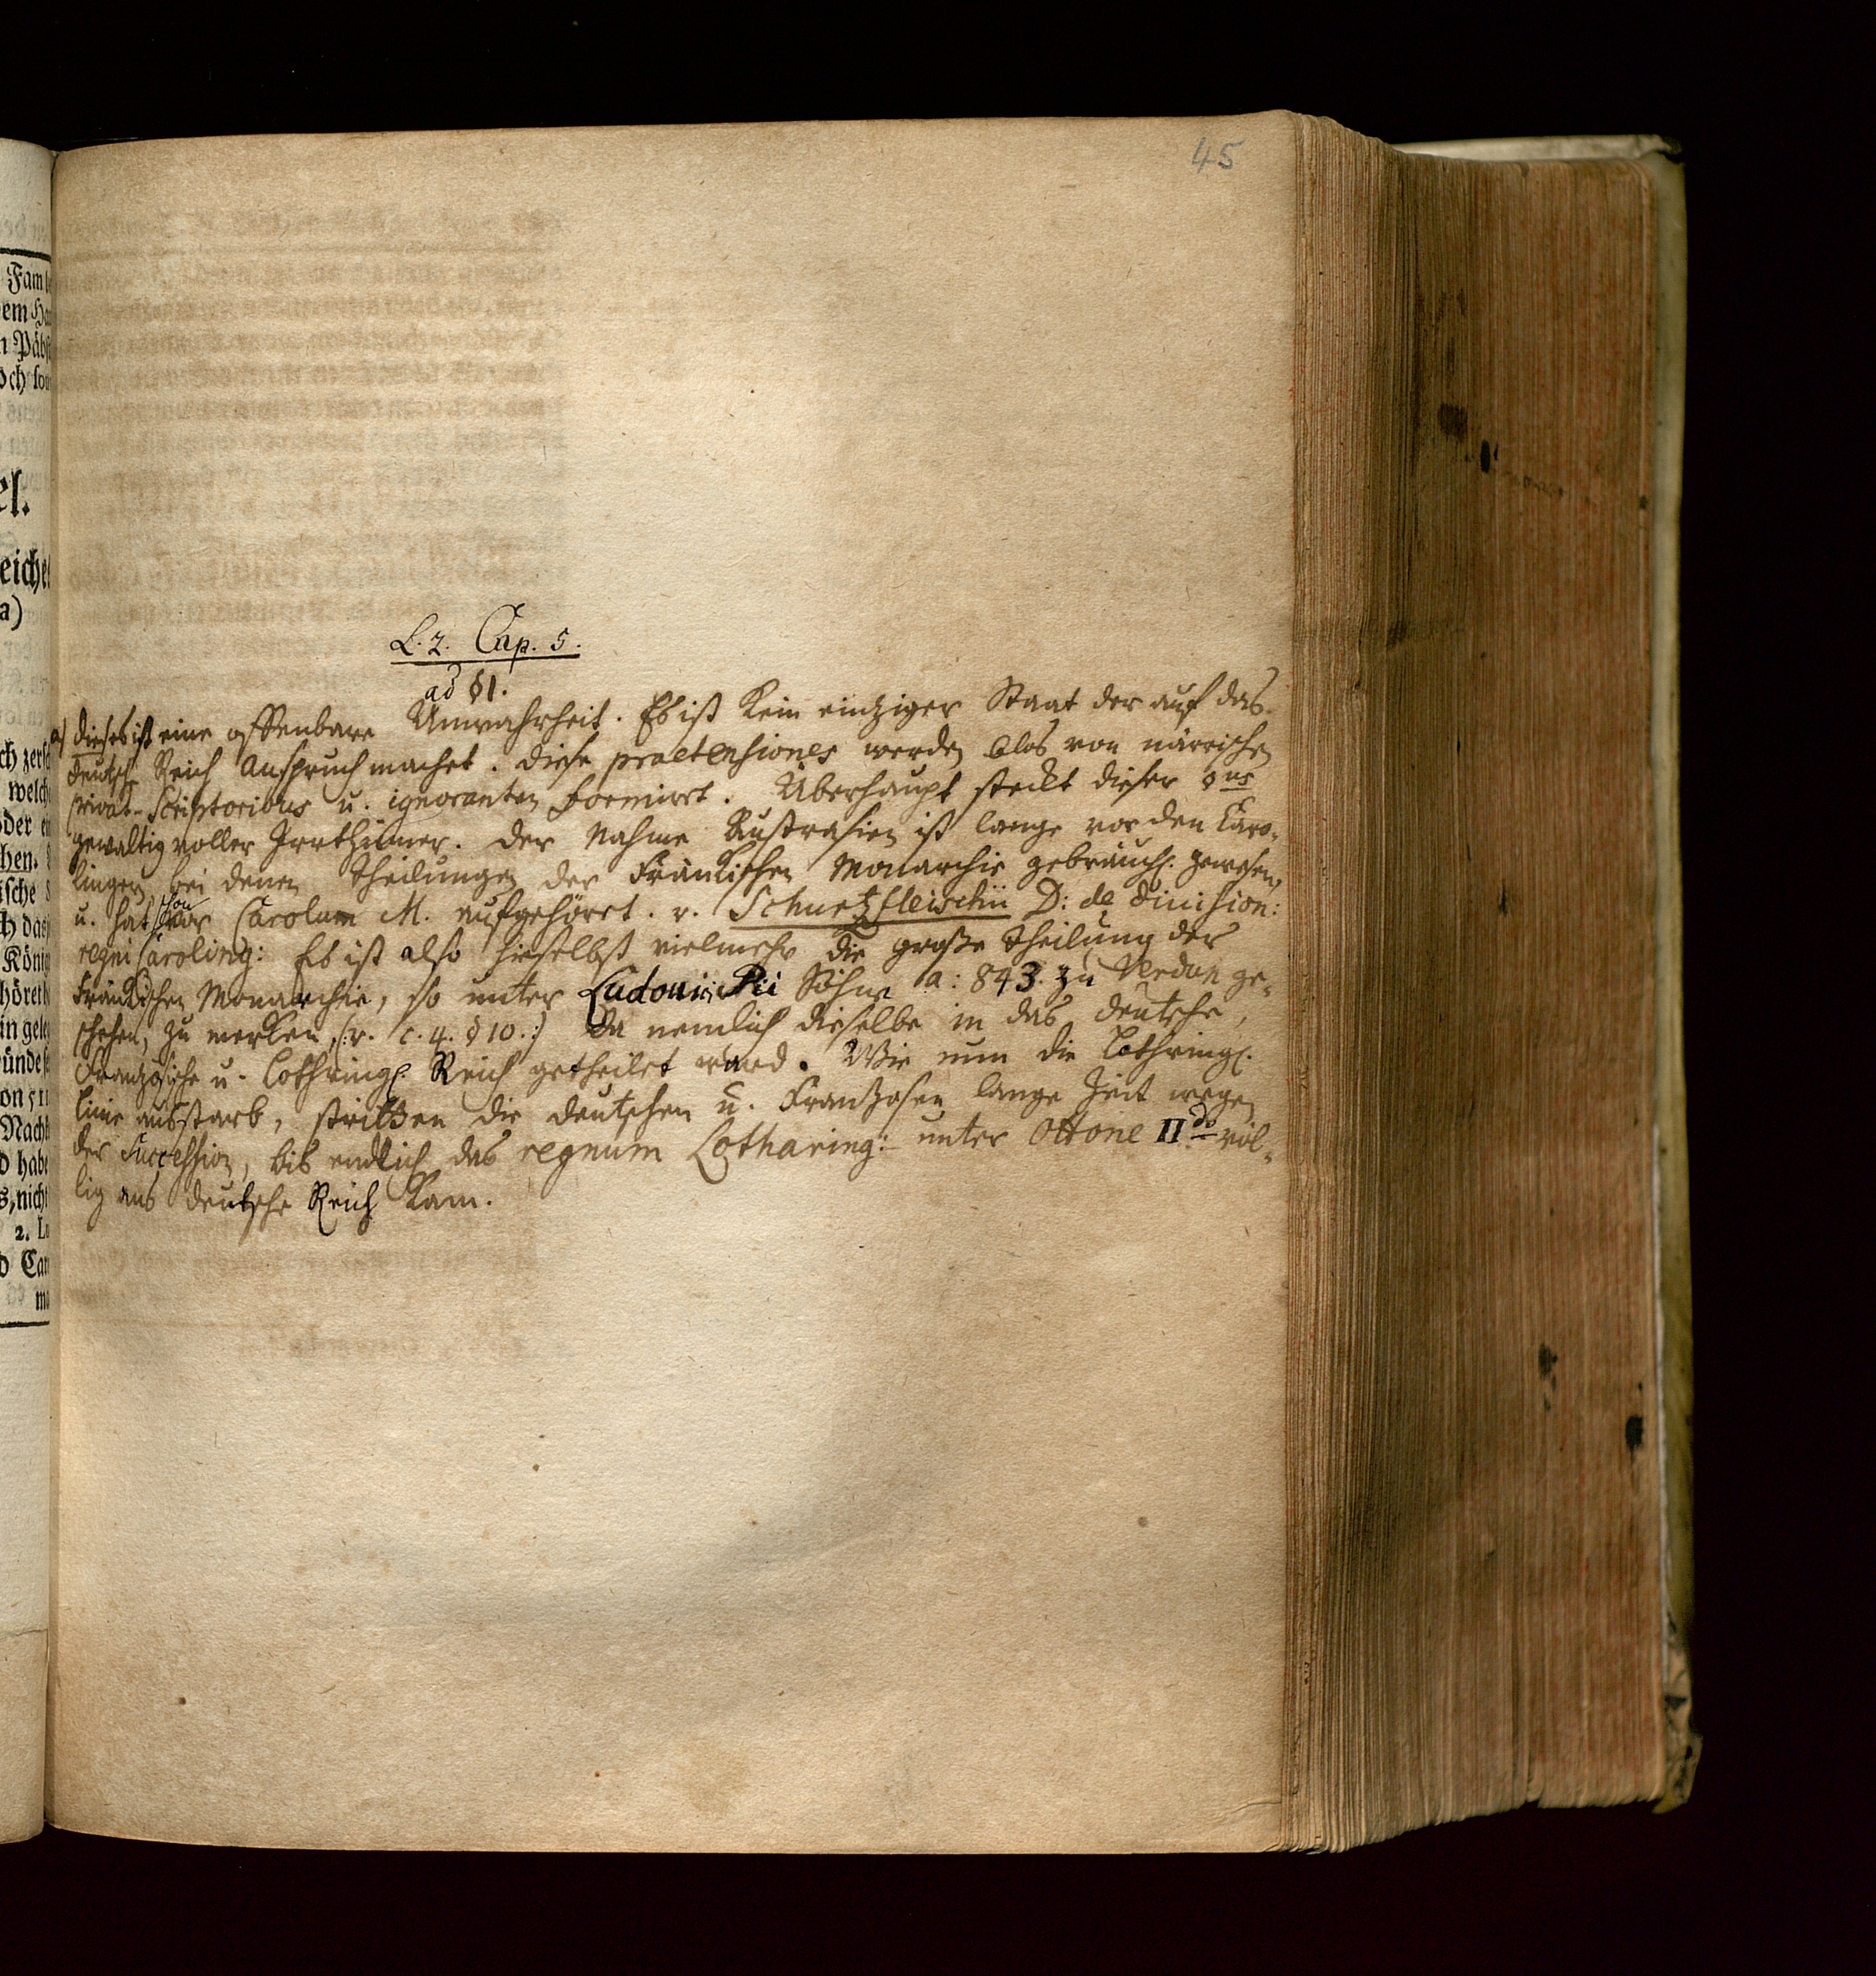 45
L. 2. Cap. 5.
ad § 1.
a) dieses ist eine offenbare Unwahrheit. Es ist kein eintziger Staat der auf das
deutsche Reich Anspruch machet. diese praetensiones werden blos von närrischen
privat-Scriptoribus u. ignoranten formirt. Überhaupt steckt dieser §us
gewaltig voller Irrthümer. der Nahme Austrasien ist lange vor den Karo-
lingern bei denen Theilungen der Fränkischen Monarchie gebräuchl. gewesen,
u. hat schon vor Carolum M. aufgehört. v. Schurtzfleischii D: de diuision:
regni Caroling: Es ist also hieselbst vielmehr die große Theilung der
Fränkischen Monarchie, so unter Ludouici Pii Söhne a: 843. zu Verdun ge-
schehen, zu merken, (:v. c. 4. § 10.:) da nemlich dieselbe in das deutsche,
Französische u. Lothringl. Reich getheilet ward. Wie nun die Lothringl.
Linie ausstarb, stritten die deutschen u. Franzosen lange Zeit wegen
der Succession, bis endlich das regnum Lotharing: unter Ottone II do völ-
lig ans deutsche Reich kam.
Fam
n Päbst
el.
eiche
a)
welch
oder
hen.
ische
König
höret
in
Nach
habe
nicht
2.